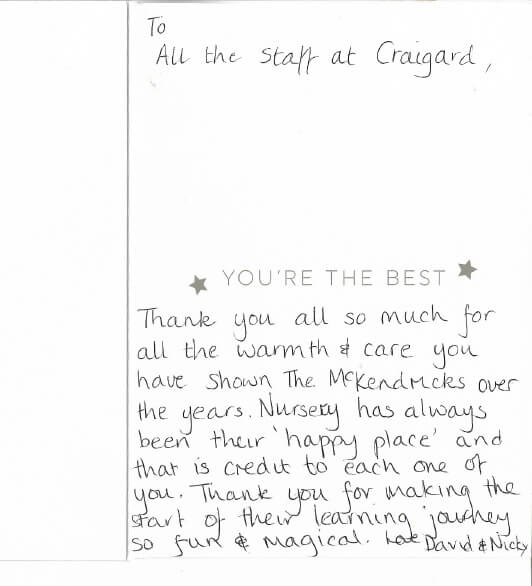 To
All the staff at Craigard,
YOU'RE THE BEST
Thank you all so much for
all the warmth & care you
have shown The McKendricks over
the years. Nursery has always
been their 'happy place' and
that is credit to each one of
you. Thank you for making the
start of their learning journey
so fun & magical. Love David & Nicky